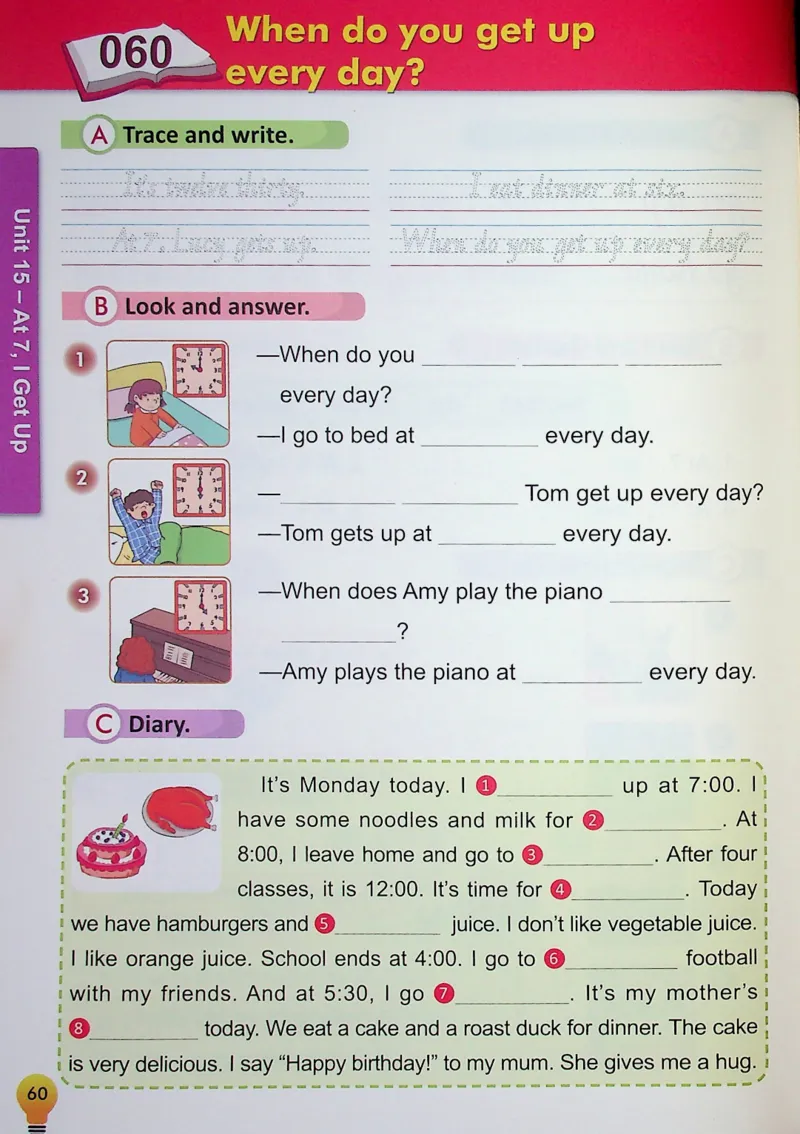 060
When do you get up
every day?
A Trace and write.
It's twelve thirty.
I eat dinner at six.
At 7, Lucy gets up.
When do you get up every day?
Unit 15 – At 7, I Get Up
B Look and answer.
1 —When do you ________ ________ ________
every day?
—I go to bed at __________ every day.
2 —__________ __________ Tom get up every day?
—Tom gets up at __________ every day.
3 —When does Amy play the piano __________
__________?
—Amy plays the piano at __________ every day.
C Diary.
It's Monday today. I 1 __________ up at 7:00. I
have some noodles and milk for 2 __________. At
8:00, I leave home and go to 3 __________. After four
classes, it is 12:00. It's time for 4 __________. Today
we have hamburgers and 5 __________ juice. I don't like vegetable juice.
I like orange juice. School ends at 4:00. I go to 6 __________ football
with my friends. And at 5:30, I go 7 __________. It's my mother's
8 __________ today. We eat a cake and a roast duck for dinner. The cake
is very delicious. I say “Happy birthday!” to my mum. She gives me a hug.
60